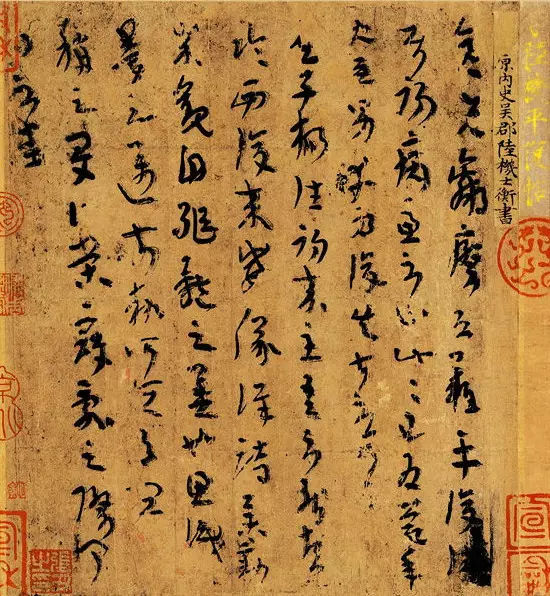 陸機平復帖
原內史吳郡陸機士衡書
彥先羸瘵恐難平復往屬
初病慮不止此此已為慶承
使唯男幸為復失前憂耳
吳子楊往初來主吾不能盡
臨西復來威儀詳跱舉動
成觀自軀體之美也思識
量之邁前執所恒有宜
稱之夏伯榮寇亂之際聞
問不悉